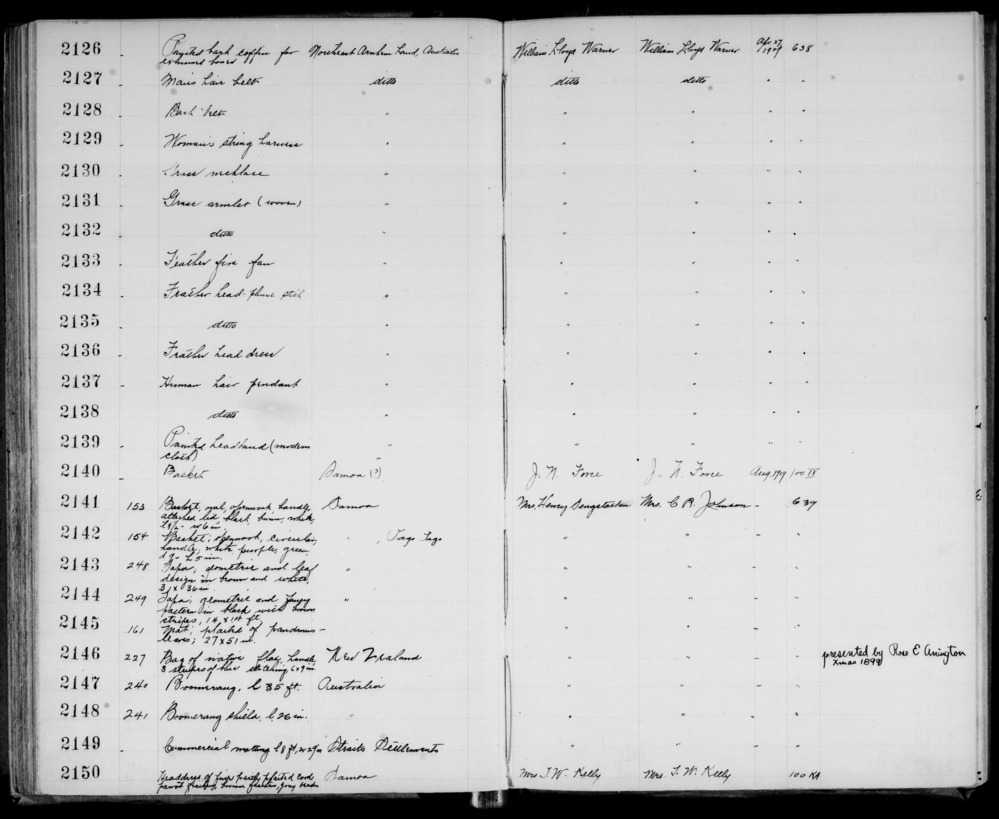 2126 Painted bark coffin for Northeast Arnhem Land, Australia William Lloyd Warner William Lloyd Warner Apr 27 1929 638
exhumed bones
2127 Mans hair belt ditto ditto ditto
2128 Bark belt "
2129 Woman's string harness "
2130 Grass necklace "
2131 Grass armlet (woven) "
2132 ditto "
2133 Feather fire fan "
2134 Feather head-plume stick "
2135 ditto "
2136 Feather head dress "
2137 Human hair pendant "
2138 ditto "
2139 Painted headband (modern "
cloth)
2140 Basket Samoa (?) J. N. Force J. N. Force Aug 1929 100 IX
2141 153 Basket, oval, openwork, handle, Samoa Mrs. Henry Mrs. C. R. Johnson - 637
attached lid, black, brown, white,
w 6 in.
2142 154 Basket, openwork, circular, " Pago Pago
handle, white purple, green
2143 248 Tapa, geometric and leaf "
design in brown and white,
31 x 36 in
2144 249 Tapa, geometric and "
pattern in black with brown
stripes, 14 x 14 ft
2145 161 Mat, plaited of pandanus -
leaves; 27 x 51 in.
2146 227 Bag of native flax, handle, New Zealand presented by Rose E Arington
3 stripes of 6x9 in Xmas 1899
2147 240 Boomerang, l 35 ft. Australia
2148 241 Boomerang shield, l 26 in. "
2149 Commercial matting l 8 ft, w 27 in Straits Settlements
2150 Headdress of plaited cord Samoa Mrs J. W. Kelly Mrs. J. W. Kelly 100 KA
parrot feathers, brown feathers, gray